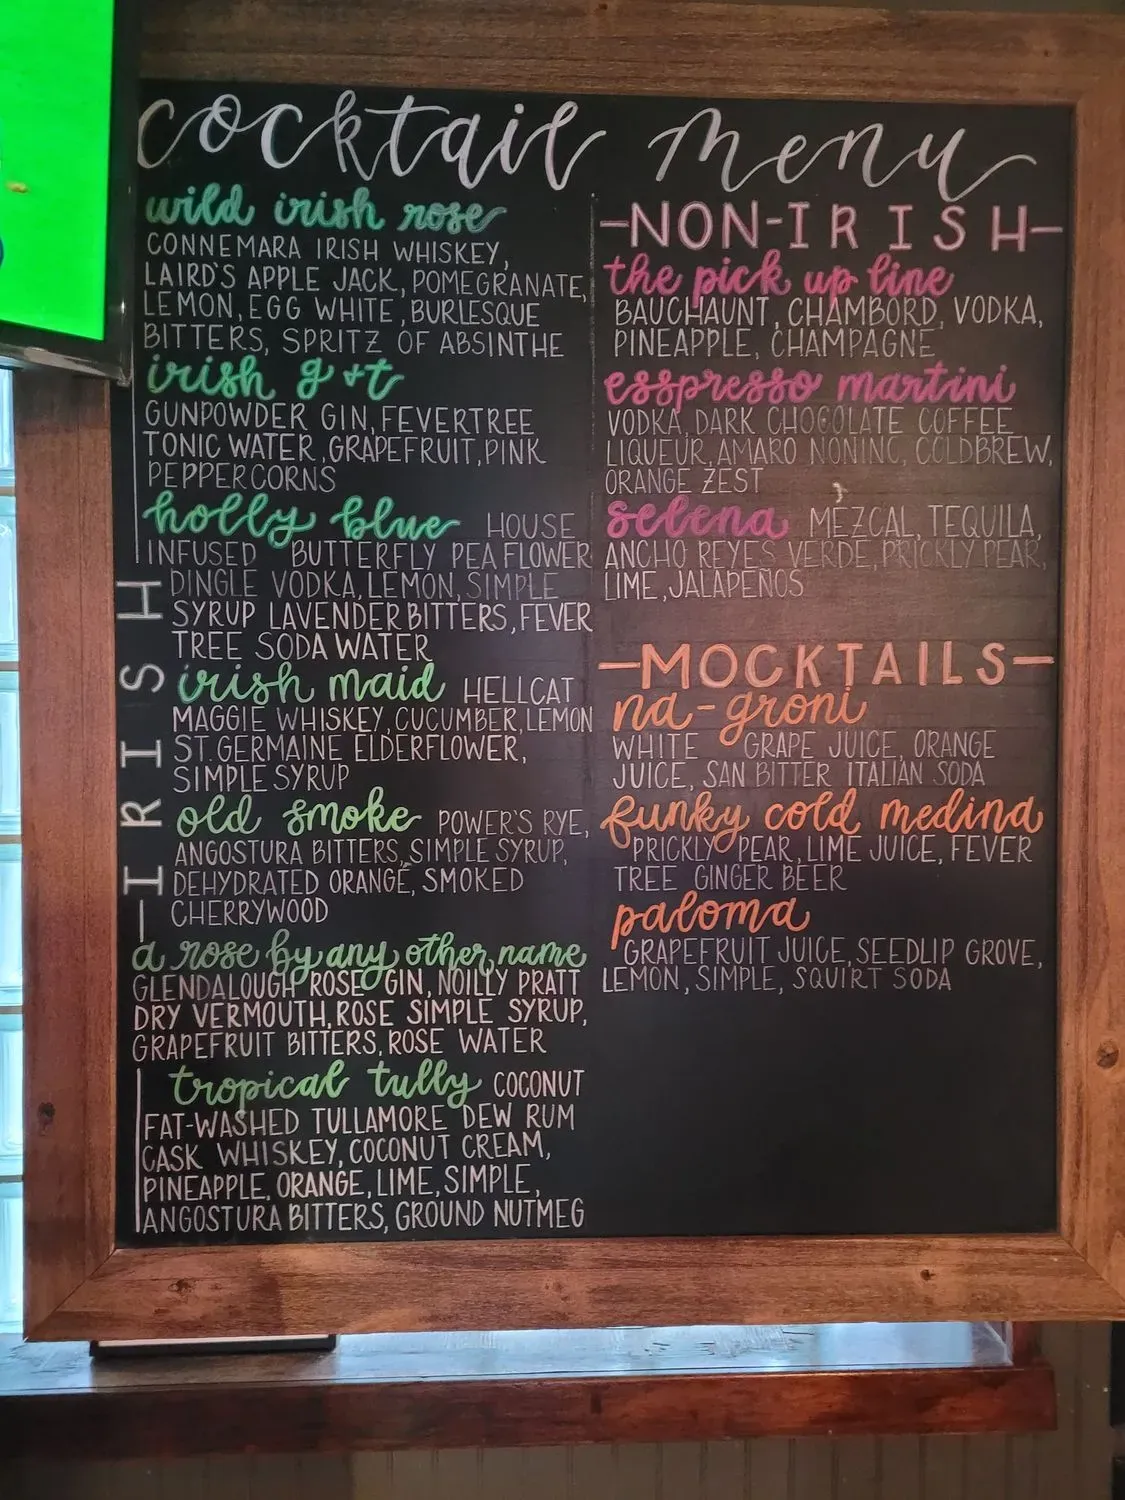 cocktail menu
wild irish rose
CONNEMARA IRISH WHISKEY,
LAIRD'S APPLE JACK, POMEGRANATE,
LEMON, EGG WHITE, BURLESQUE
BITTERS, SPRITZ OF ABSINTHE
irish g+t
GUNPOWDER GIN, FEVERTREE
TONIC WATER, GRAPEFRUIT, PINK
PEPPERCORNS
holly blue HOUSE
INFUSED BUTTERFLY PEA FLOWER
DINGLE VODKA, LEMON, SIMPLE
SYRUP LAVENDER BITTERS, FEVER
TREE SODA WATER
irish maid HELLCAT
MAGGIE WHISKEY, CUCUMBER, LEMON
ST. GERMAINE ELDERFLOWER,
SIMPLE SYRUP
old smoke POWER'S RYE,
ANGOSTURA BITTERS, SIMPLE SYRUP,
DEHYDRATED ORANGE, SMOKED
CHERRYWOOD
a rose by any other name
GLENDALOUGH ROSE GIN, NOILLY PRATT
DRY VERMOUTH, ROSE SIMPLE SYRUP,
GRAPEFRUIT BITTERS, ROSE WATER
tropical tully COCONUT
FAT-WASHED TULLAMORE DEW RUM
CASK WHISKEY, COCONUT CREAM,
PINEAPPLE, ORANGE, LIME, SIMPLE,
ANGOSTURA BITTERS, GROUND NUTMEG
-IRISH
-NON-IRISH-
the pick up line
BAUCHAUNT, CHAMBORD, VODKA,
PINEAPPLE, CHAMPAGNE
esspresso martini
VODKA, DARK CHOCOLATE COFFEE
LIQUEUR, AMARO NONINC, COLDBREW,
ORANGE ZEST
selena MEZCAL, TEQUILA,
ANCHO REYES VERDE, PRICKLY PEAR,
LIME, JALAPEÑOS
-MOCKTAILS-
na-groni
WHITE GRAPE JUICE, ORANGE
JUICE, SAN BITTER ITALIAN SODA
funky cold medina
PRICKLY PEAR, LIME JUICE, FEVER
TREE GINGER BEER
paloma
GRAPEFRUIT JUICE, SEEDLIP GROVE,
LEMON, SIMPLE, SQUIRT SODA